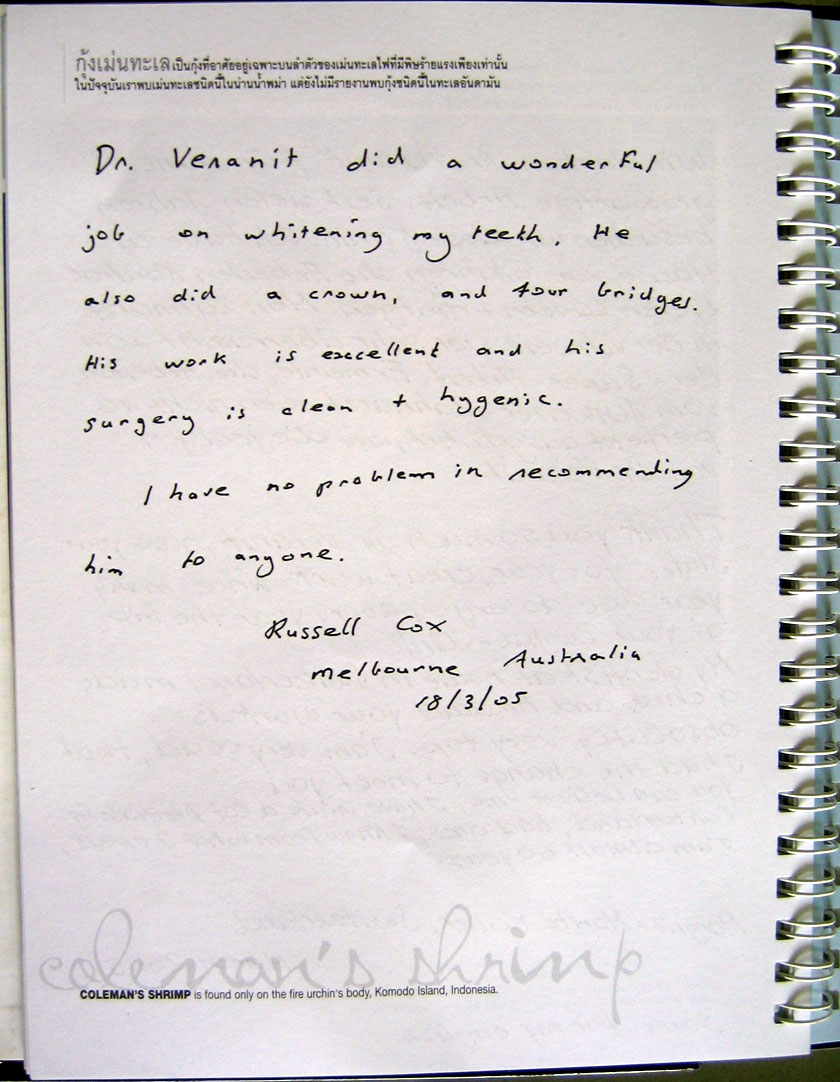 กุ้งเม่นทะเล เป็นกุ้งที่อาศัยอยู่เฉพาะบนลำตัวของเม่นทะเลไฟที่มีพิษร้ายแรงเพียงเท่านั้น
ในปัจจุบันเราพบเม่นทะเลชนิดนี้ในน่านน้ำพม่า แต่ยังไม่มีรายงานพบกุ้งชนิดนี้ในทะเลอันดามัน
Dr. Veranit did a wonderful
job on whitening my teeth. He
also did a crown, and four bridges.
His work is excellent and his
surgery is clean + hygenic.
I have no problem in recommending
him to anyone.
Russell Cox
Melbourne Australia
18/3/05
coleman's shrimp
COLEMAN'S SHRIMP is found only on the fire urchin's body, Komodo Island, Indonesia.